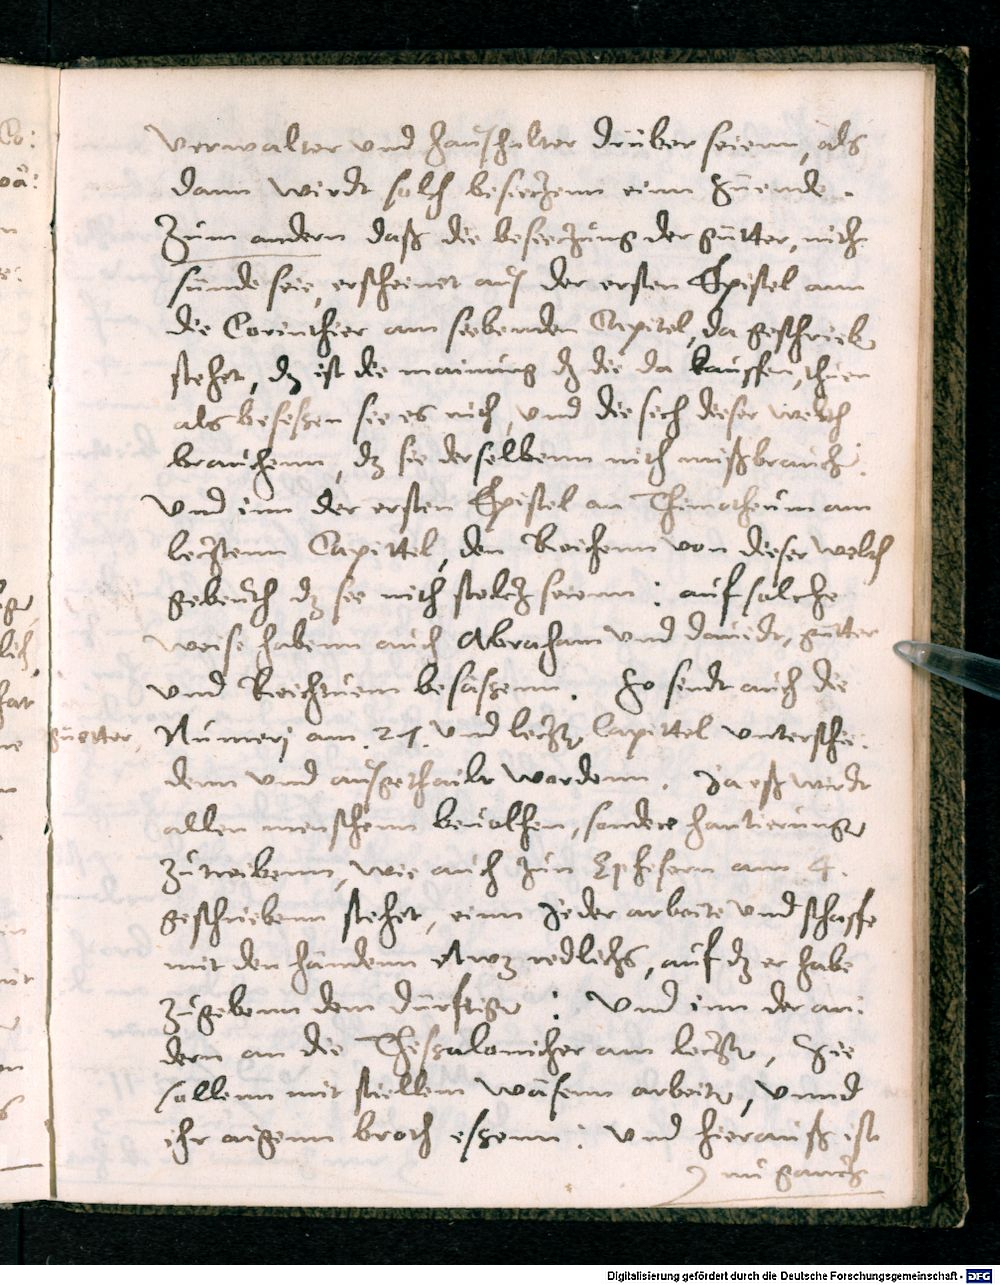 verwalter vnd haußhalter drüber seienn, als
dann wirdt solch besietzenn einn Sünde.
Zum andern daß die besietzung der gütter, nich
sünde seie, erscheinet auß der ersten Epistel ann
die Corinthier am siebenden Capitel, da geschrieb
stehet, dz ist die mainung dz die da kauffen, thuen
als beseßen sie es nich, vnd die sich dieser welth
brauchenn, dz sie derselbenn nith mißbrauch.
Vnd inn der ersten Epistel an Thimotheum am
letzstenn Capittel, den Reichenn von dieser welth
gebeuth dz sie nith stoltz seienn: auf solche
weise habenn auch Abraham vnd Dauidt, gütter
vnd Reichtuem beseßenn. So sindt auch die
güetter, Numerj am. 27. vnd letzst Capittel vnterschie-
denn vnd außgethailt wordenn. Ja eß wirdt
allen menschenn beuolhen, sondere hantierunge
zutreibenn, wie auch zun Ephesern am 4.
geschriebenn stehet, einn Jeder arbeite vnd schaffe
mit den händenn etwz redlichs, auf dz er habe
zugebenn dem dürftigen: Vnd inn der an:
dern an die Theßalonicher am letzst, Sie
sollenn mit stiellem wäsenn arbeiten, vnnd
ihr aigenn broth eßenn: Vnd hierauß ist
nu gantz
Digitalisierung gefördert durch die Deutsche Forschungsgemeinschaft - DFG